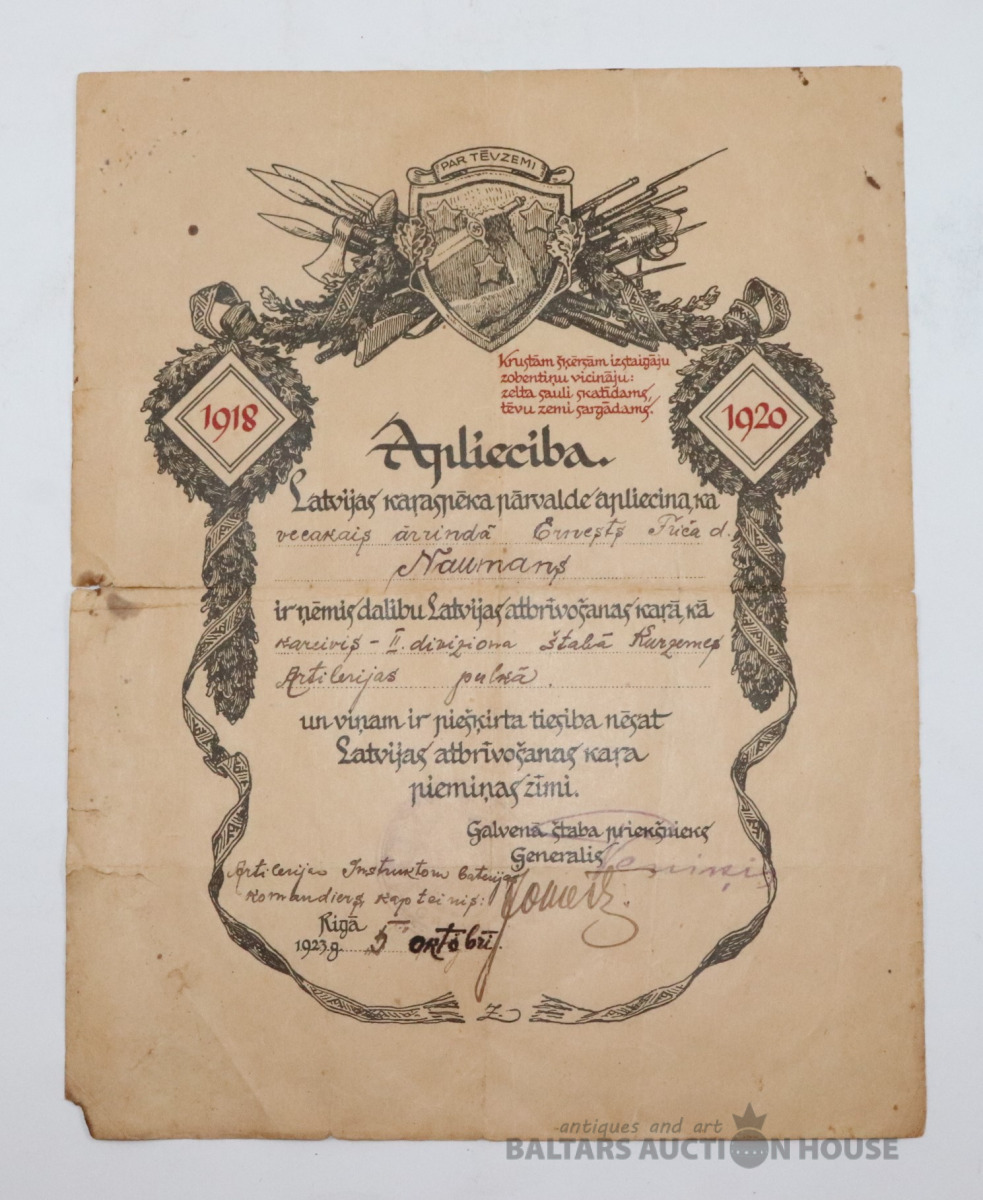 PAR TĒVZEMI
Krustām šķērsām izstaigāju
zobentiņu vicināju:
zelta sauli skatīdams,
tēvu zemi sargādams.
1918
1920
Apliecība.
Latvijas kaŗaspēka pārvalde apliecina, ka
vecakais ārrindā Ernests Friča d.
Naumans
ir ņēmis dalību Latvijas atbrīvošanas kaŗā, kā
kareivis – II. diviziona štabā Kurzemes
Artilerijas pulkā.
un viņam ir piešķirta tiesība nēsat
Latvijas atbrīvošanas kaŗa
piemiņas zīmi.
Galvenā štaba priekšnieks
Ģenerālis
Artilerijas Instruktoru baterijas
Komandiers, kapteinis:
Rīgā
1923.g. 5 oktobrī.
Z
antiques and art
BALTARS AUCTION HOUSE